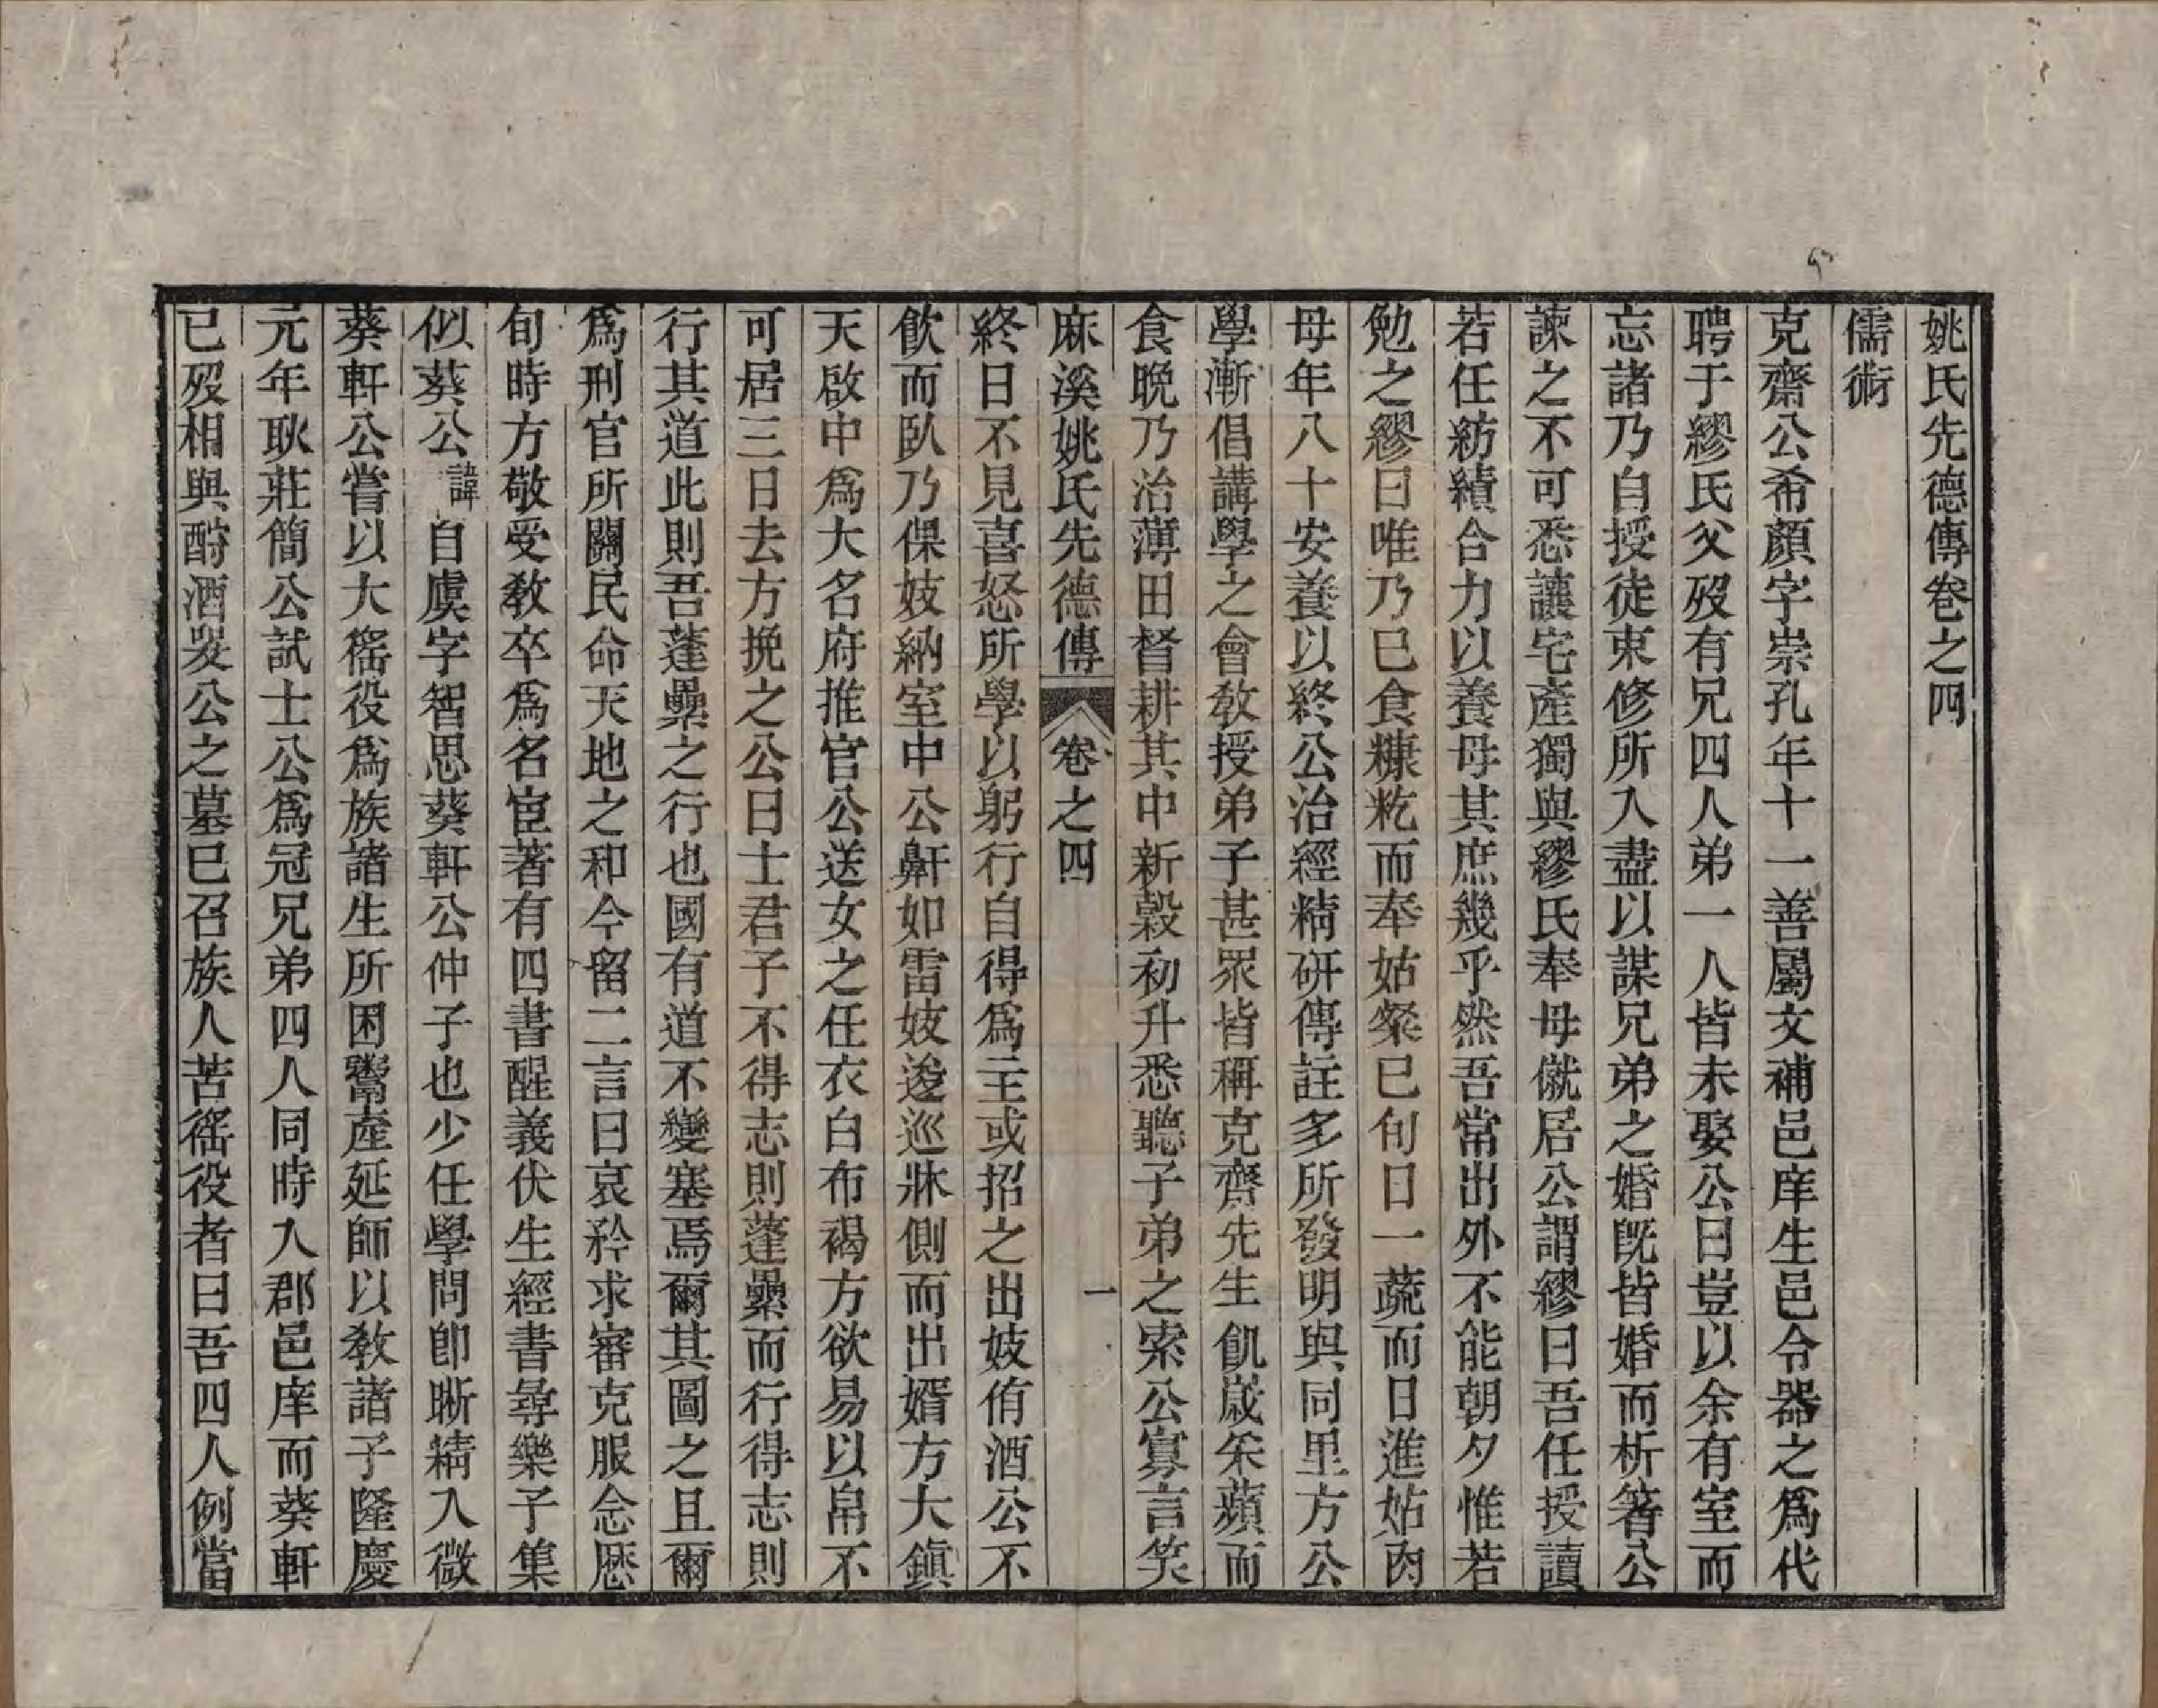 姚氏先德傳卷之四
儒術
克齋公希顏字崇孔年十一善屬文補邑庠生邑令器之爲代
聘于繆氏父歿有兄四人弟一人皆未娶公曰豈以余有室而
忘諸乃自授徒束修所入盡以謀兄弟之婚旣皆婚而析箸公
諫之不可悉讓宅產獨與繆氏奉母僦居公謂繆曰吾任授讀
若任紡績合力以養母其庶幾乎然吾常出外不能朝夕惟若
勉之繆曰唯乃已食糠籺而奉姑粲已旬日一蔬而日進姑肉
母年八十安養以終公治經精研傳註多所發明與同里方公
學漸倡講學之會敎授弟子甚眾皆稱克齋先生飢歲采蘋而
食晚乃治薄田督耕其中新穀初升悉聽子弟之索公寡言笑
麻溪姚氏先德傳 卷之四 一
終日不見喜怒所學以躬行自得爲主或招之出妓侑酒公不
飮而臥乃倮妓納室中公鼾如雷妓逡巡牀側而出婿方大鎭
天啟中爲大名府推官公送女之任衣白布褐方欲易以帛不
可居三日去方挽之公曰士君子不得志則蓬纍而行得志則
行其道此則吾蓬纍之行也國有道不變塞焉爾其圖之且爾
爲刑官所關民命天地之和今留二言曰哀矜求審克服念歷
旬時方敬受敎卒爲名宦著有四書醒義伏生經書尋樂子集
似葵公諱自虞字智思葵軒公仲子也少任學問卽晰精入微
葵軒公嘗以大徭役爲族諸生所困鬻產延師以敎諸子隆慶
元年耿莊簡公試士公爲冠兄弟四人同時入郡邑庠而葵軒
已歿相與酹酒哭公之墓已召族人苦徭役者曰吾四人例當